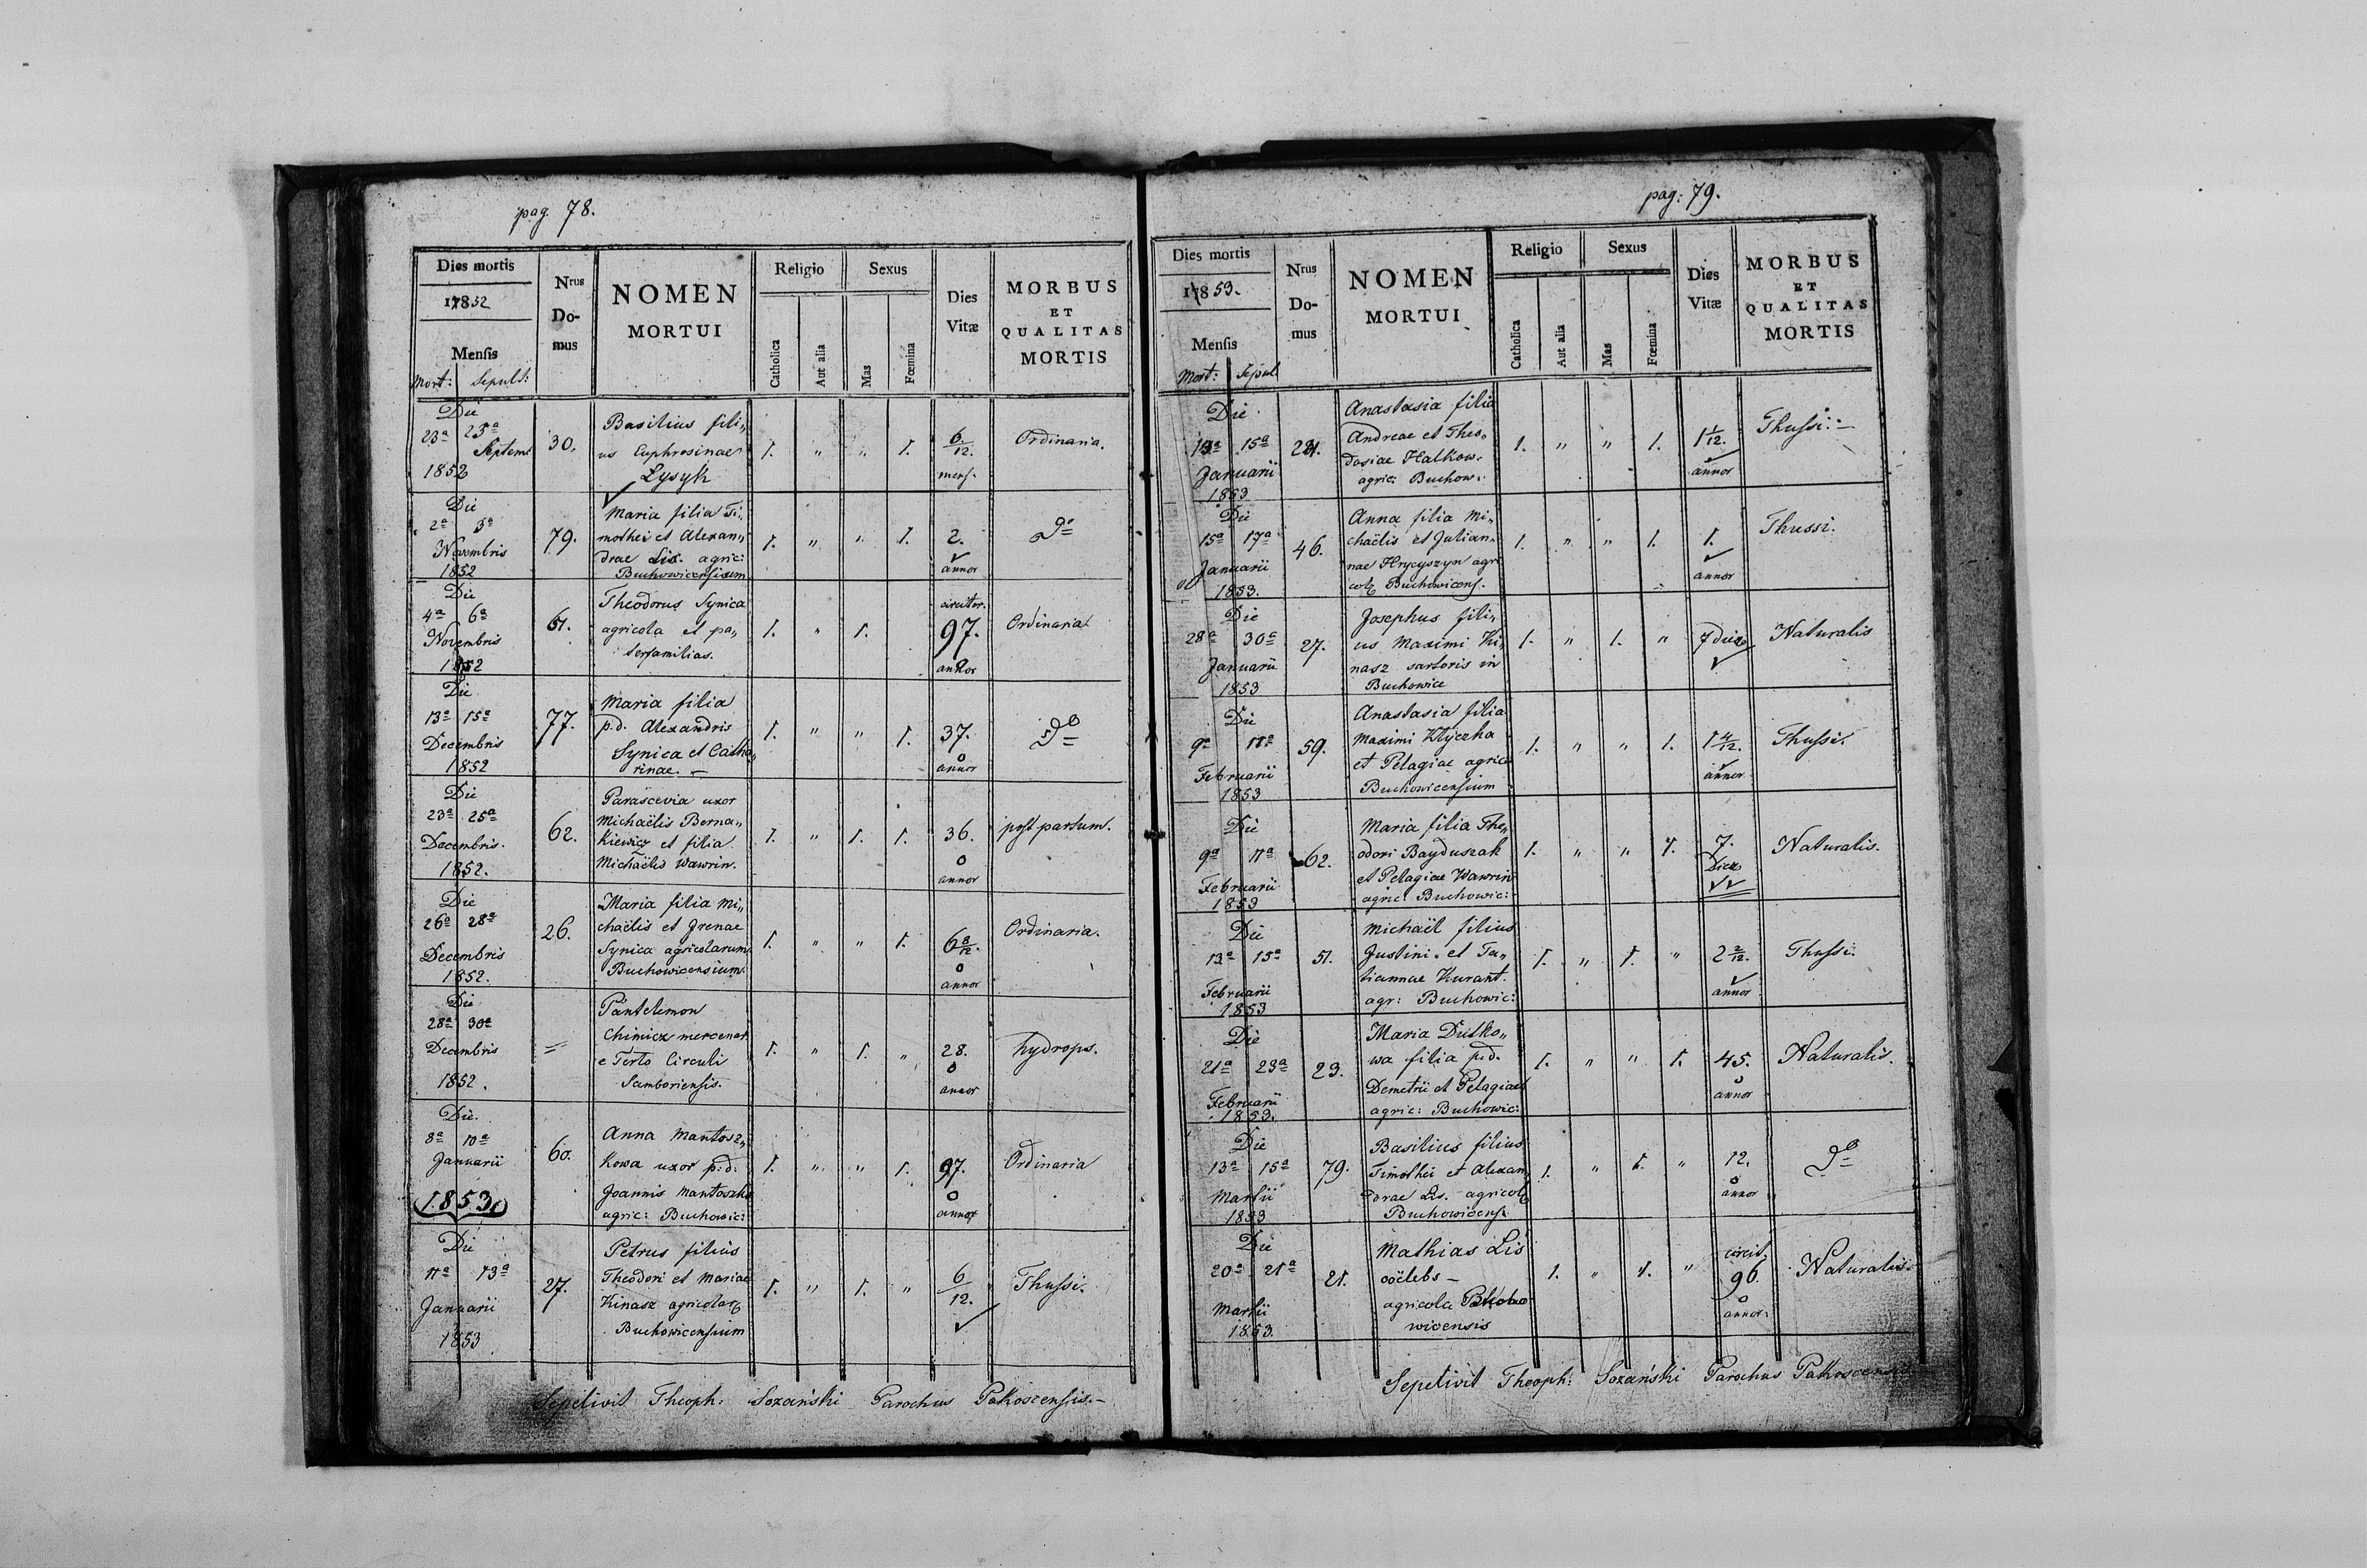 pag. 78.
Dies mortis
17852
Mensis
Mort: Sepult:
Nrus Do-
mus
NOMEN
MORTUI
Religio
Catholica
Aut alia
Sexus
Mas
Fœmina
Dies
Vitæ
MORBUS
ET
QUALITAS
MORTIS
Die
23ª 25ª
Septem:
1852
30.
Basilius fili„
us Euphrosinae
Lysyk
1. „ „ 1.
6/12.
mens.
Ordinaria.
Die
2ª 3ª
Novembris
1852
79.
Maria filia Ti„
mothei et Alexan„
drae Lis. agric:
Buchowicensium
1. „ „ 1.
2.
annor
Dº
Die
4ª 6ª
Novembris
1852
61.
Theodorus Synica
agricola et pa„
terfamilias.
1. „ 1.
circiter.
97.
annor
Ordinaria
Die
13ª 15ª
Decembris
1852
77.
Maria filia
p.d. Alexandris
Synica et Catha„
rinae. –
1. „ „ 1.
37.
annor
Dº
Die
23ª 25ª
Decembris.
1852.
62.
Parascevia uxor
Michaëlis Berna„
kiewicz et filia
Michaëlis Wawrin.
1. „ 1. 1.
36.
annor
post partum.
Die
26ª 28ª
Decembris
1852.
26.
Maria filia Mi„
chaëlis et Irenae
Synica agricolarum
Buchowicensium.
1. „ „ 1.
6 8/12.
annor
Ordinaria.
Die
28ª 30ª
Decembris
1852.
Pantelemon
Chimicz mercenar.
e Terto Circuli
Samboriensis.
1. „ 1. „
28.
annor
hydrops.
Die.
8ª 10ª
Januarii
1853
60.
Anna Mantosz„
kowa uxor p:d:
Joannis Mantoszko
agric: Buchowic:
1. „ „ 1.
97.
annor
Ordinaria
Die
11ª 13ª
Januarii
1853
27.
Petrus filius
Theodori et Mariae
Kinasz agricolar
Buchowicensium
1. „ 1. „
6/12.
Thussi.
Sepelivit Theoph: Sozański Parochus Pakoscensis.–
pag. 79.
Dies mortis
17853.
Mensis
Mort: Sepul
Nrus
Do-
mus
NOMEN
MORTUI
Religio
Catholica
Aut alia
Sexus
Mas
Fœmina
Dies
Vitæ
MORBUS
ET
QUALITAS
MORTIS
Die
13ª 15ª
Januarii
1853
Anastasia filia
Andreae et Theo„
dosiae Halkow.
agric: Buchow:
1. „ „ 1.
1 1/12.
annor
Thussi.–
Die
15ª 17ª
Januarii
1853.
46.
Anna filia Mi„
chaëlis et Julian„
nae Hrycyszyn agri
col. Buchowicens.
1. „ „ 1.
1.
annor
Thussi.
Die
28ª 30ª
Januarii
1853
27.
Josephus fili„
us Maximi Ki„
nasz sartoris in
Buchowice
1. „ 1. „
7 dies
Naturalis
Die
9ª 11ª
Februarii
1853
59.
Anastasia filia
Maximi Klyczka
et Pelagiae agric
Buchowicensium
1. „ „ 1.
1 4/12.
annor
Thussi.
Die
9ª 11ª
Februarii
1853
62.
Maria filia The„
odori Bayduszak
et Pelagiae Wawrin
agric. Buchowic:
1. „ „ 1.
7.
Dies
Naturalis.
Die
13ª 15ª
Februarii
1853
51.
Michaël filius
Justini. et Ta„
tiannae Kurant.
agr: Buchowic:
1. „ 1. „
2 2/12.
annor
Thussi.
Die
21ª 23ª
Februarii
1853.
23.
Maria Dutko„
wa filia p.d.
Demetrii et Pelagiae
agric: Buchowic:
1. „ „ 1.
45.
annor
Naturalis.
Die
13ª 15ª
Martii
1853
79.
Basilius filius
Timothei et Alexan„
drae Lis. agricol
Buchowicens.
1. „ 1. „
12.
annor
Dº
Die
20ª 21ª
Martii
1853.
21.
Mathias Lis
coëlebs –
agricola Bucho
wicensis
1. „ 1. „
circit.
96.
annor.
Naturalis
Sepelivit Theoph: Sozański Parochus Pakoscensis